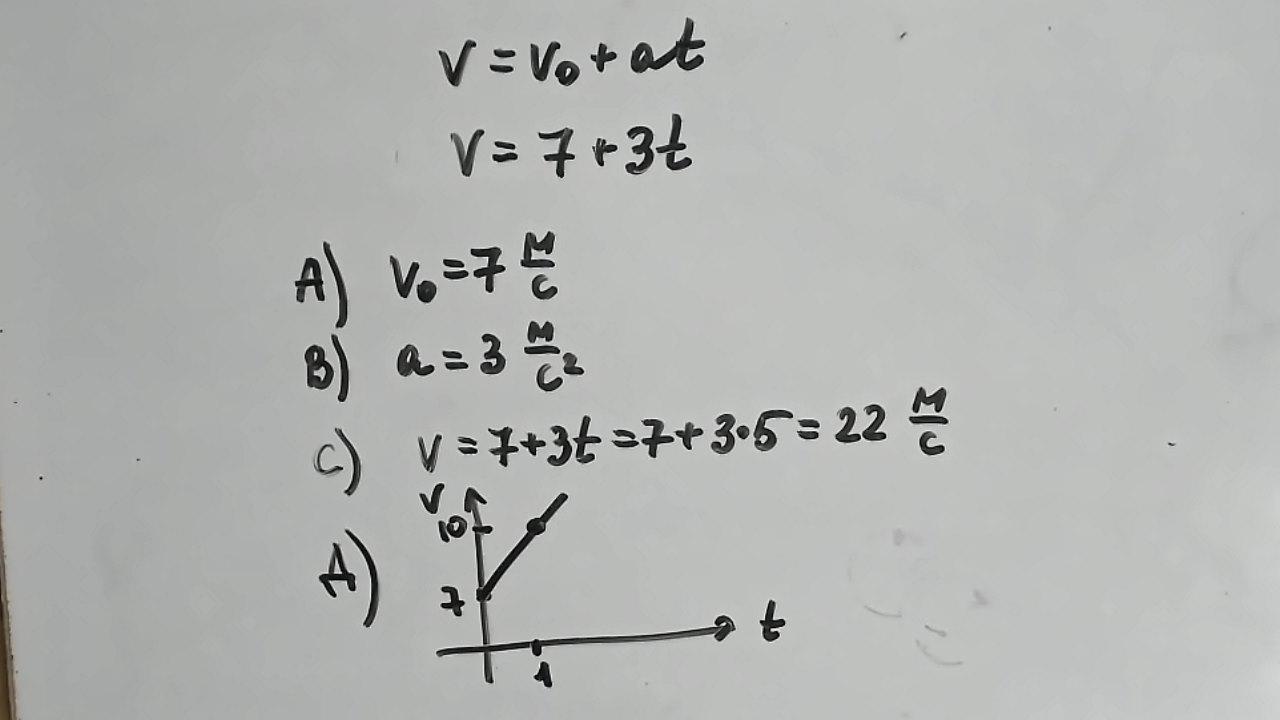 v = v₀ + at
v = 7 + 3t
A) v₀ = 7 м/с
B) a = 3 м/с²
C) v = 7 + 3t = 7 + 3·5 = 22 м/с
Д)
v
10
7
t
1